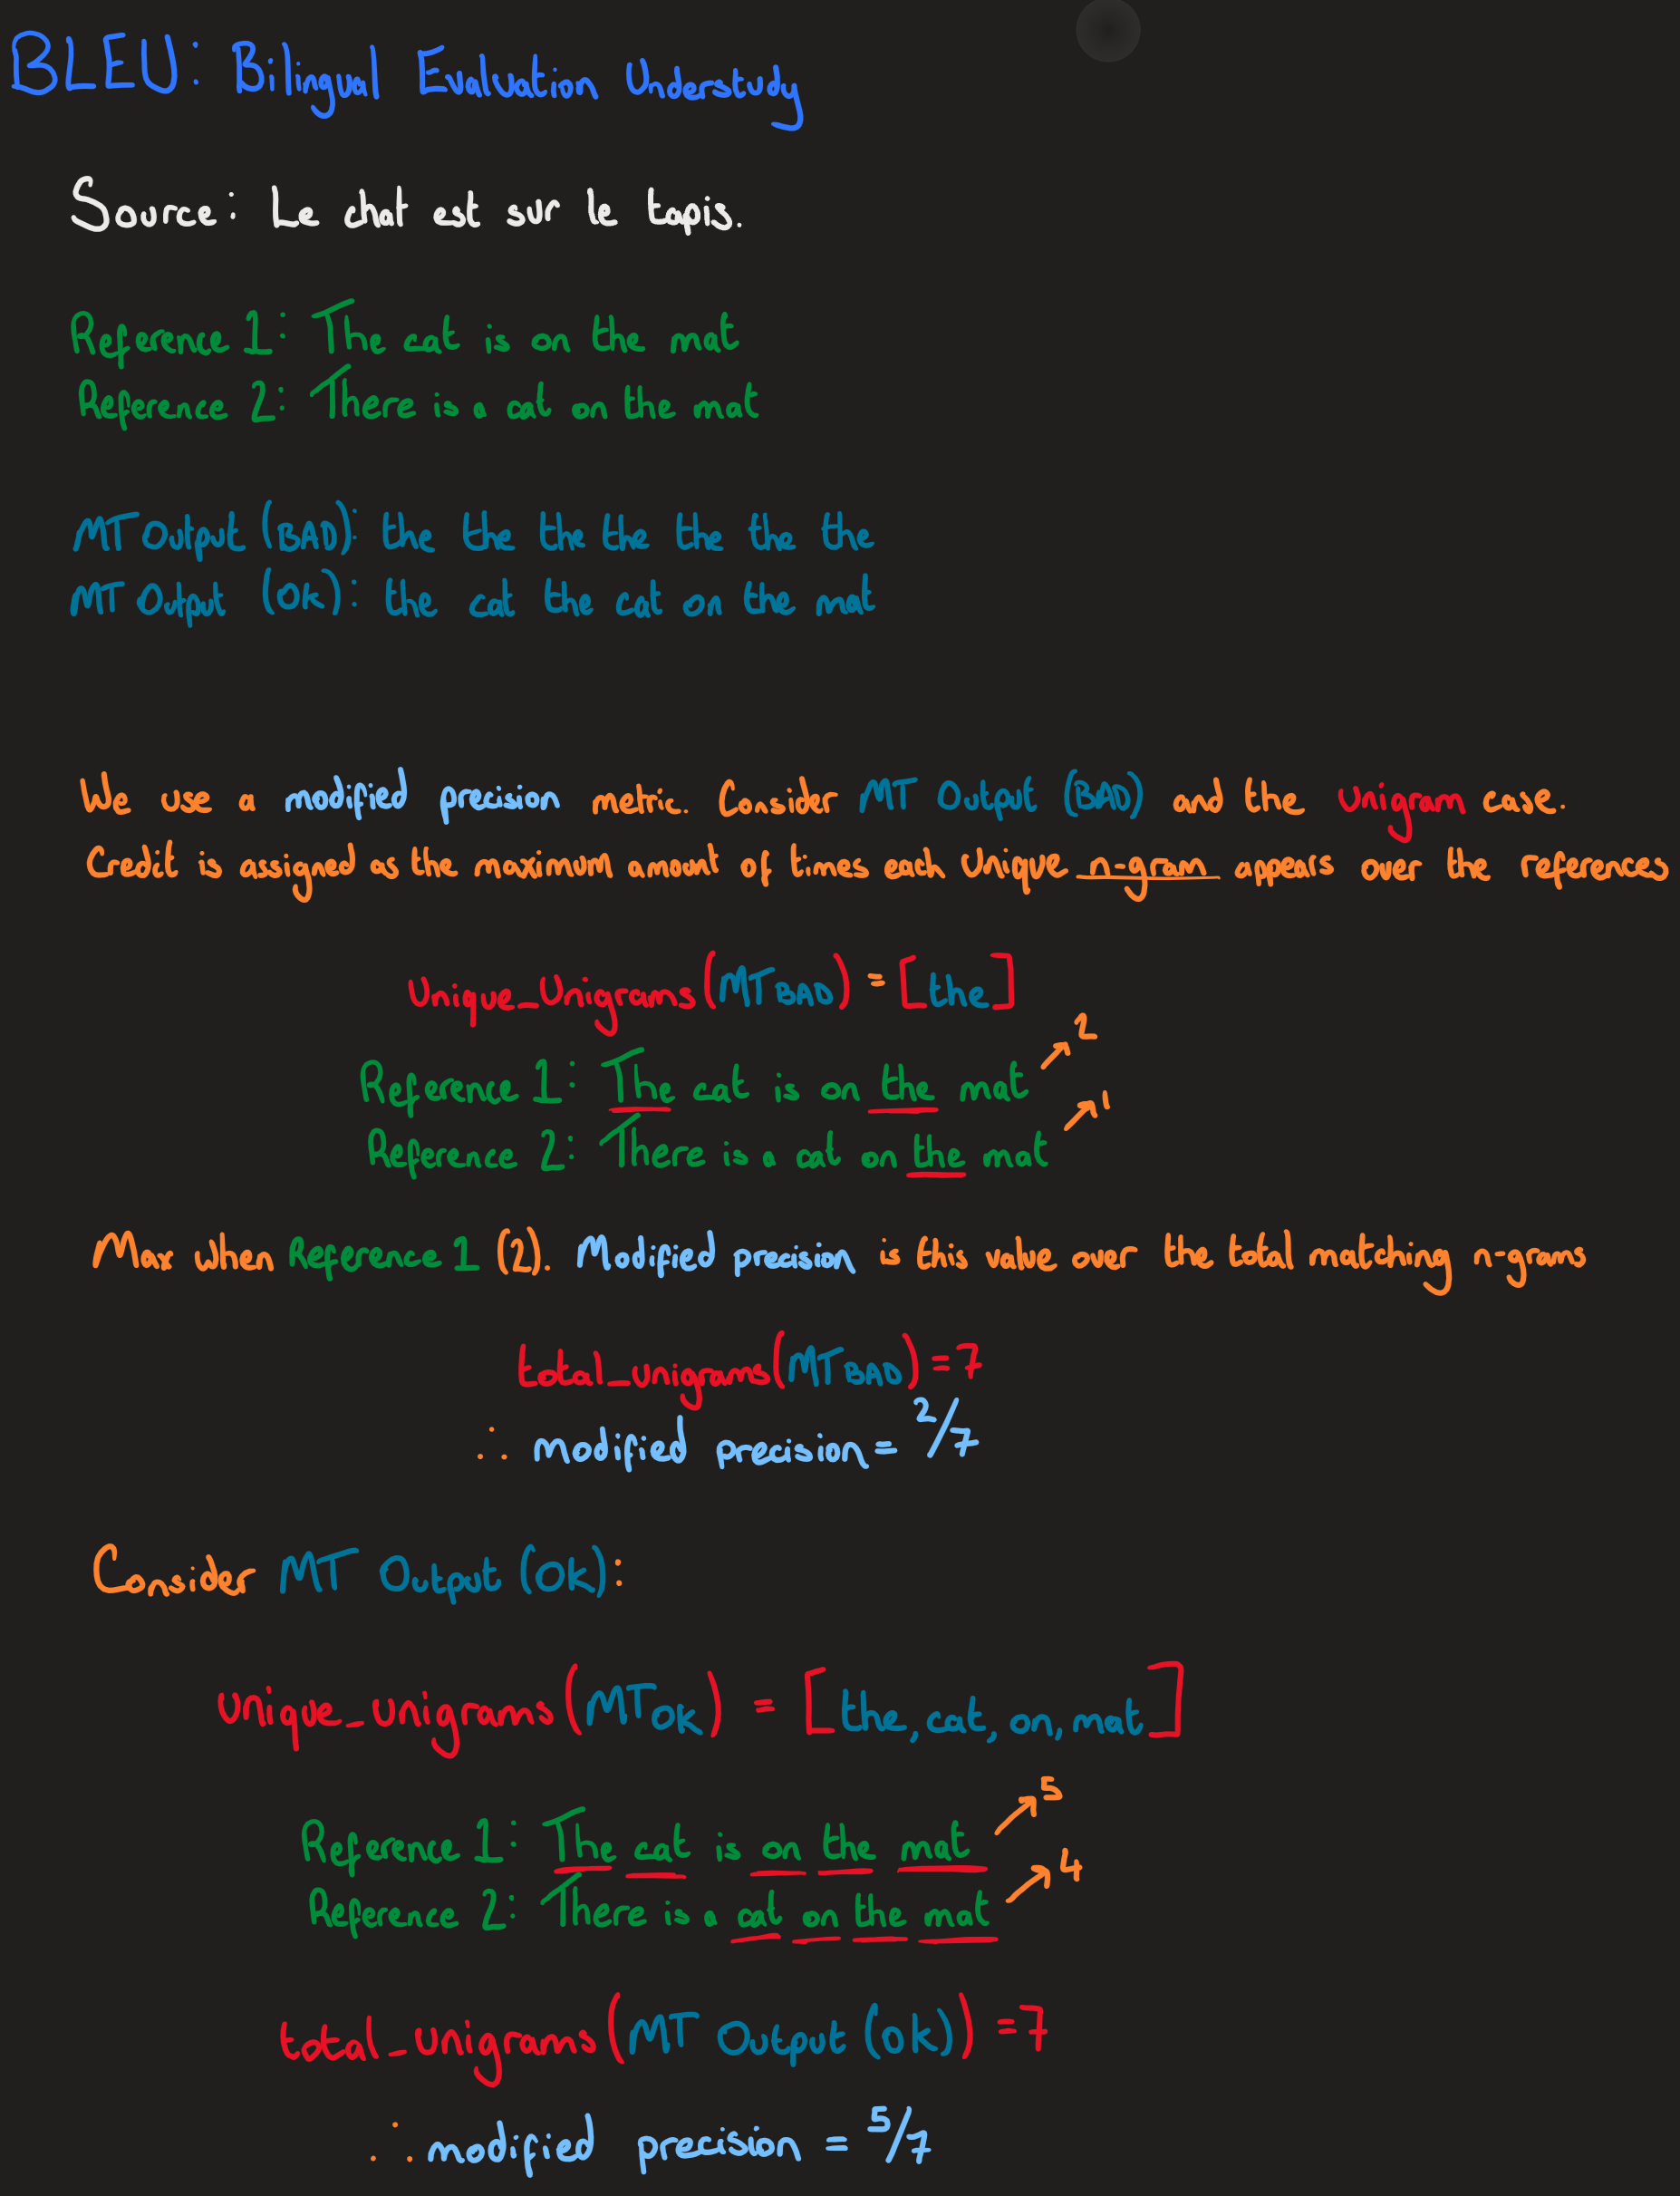 BLEU: Bilingual Evaluation Understudy
Source: Le chat est sur le tapis.
Reference 1: The cat is on the mat
Reference 2: There is a cat on the mat
MT Output (BAD): the the the the the the the
MT Output (OK): the cat the cat on the mat
We use a modified precision metric. Consider MT Output (BAD) and the unigram case.
Credit is assigned as the maximum amount of times each unique n-gram appears over the references
Unique_Unigrams(MT BAD) = [the]
Reference 1: The cat is on the mat ↗ 2
Reference 2: There is a cat on the mat ↗ 1
Max when Reference 1 (2). Modified precision is this value over the total matching n-grams
total_unigrams(MT BAD) = 7
∴ modified precision = 2/7
Consider MT Output (OK):
unique_unigrams(MT OK) = [the, cat, on, mat]
Reference 1: The cat is on the mat ↗ 5
Reference 2: There is a cat on the mat ↗ 4
total_unigrams(MT Output (OK)) = 7
∴ modified precision = 5/7